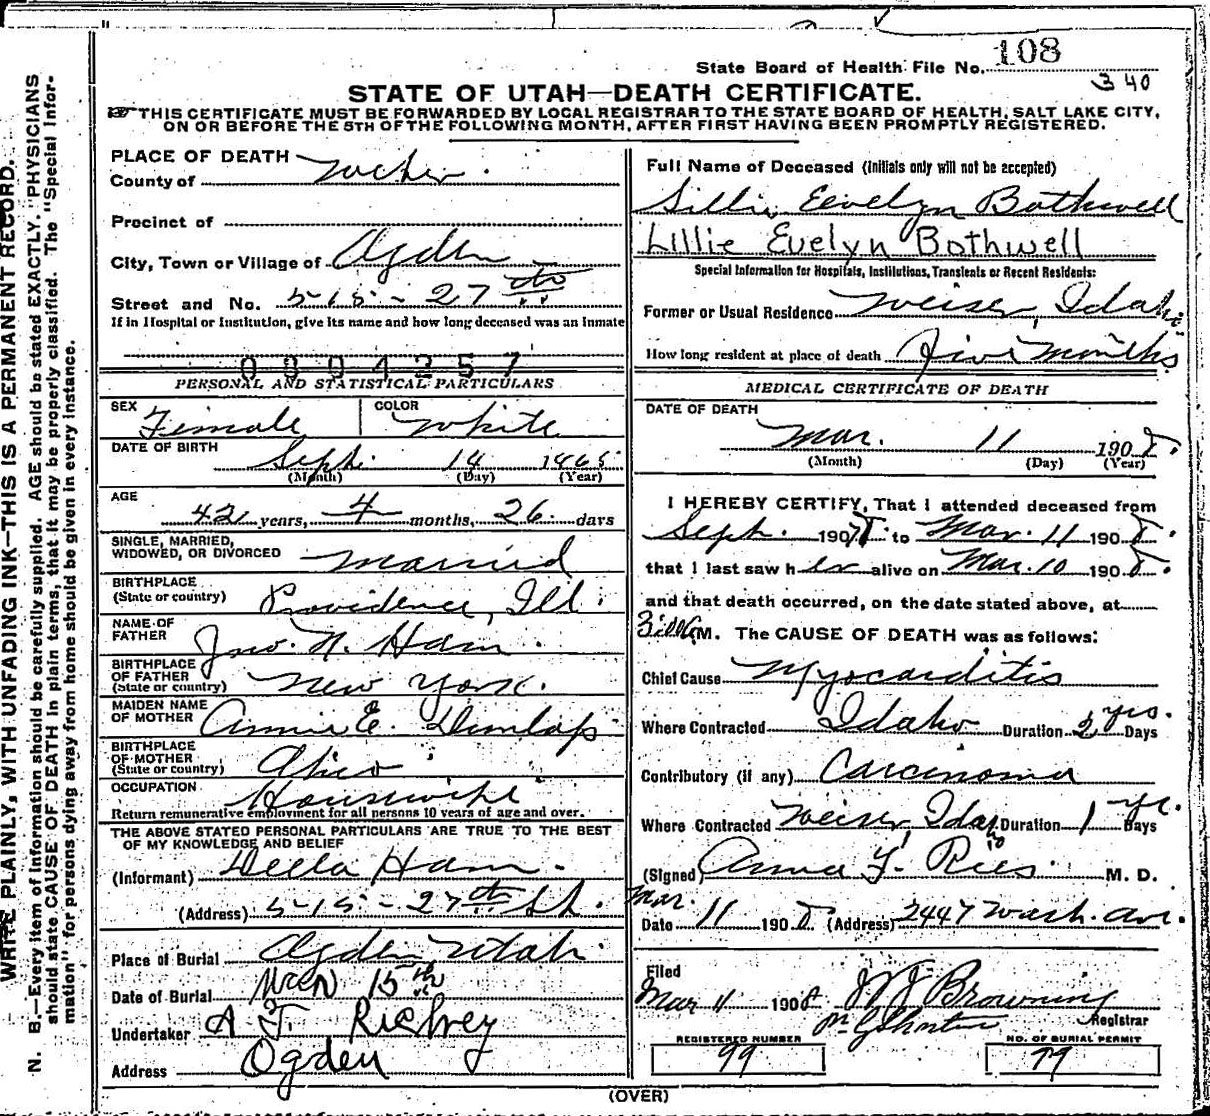 State Board of Health File No. 108
340
STATE OF UTAH—DEATH CERTIFICATE.
THIS CERTIFICATE MUST BE FORWARDED BY LOCAL REGISTRAR TO THE STATE BOARD OF HEALTH, SALT LAKE CITY,
ON OR BEFORE THE 5TH OF THE FOLLOWING MONTH, AFTER FIRST HAVING BEEN PROMPTLY REGISTERED.
WRITE PLAINLY, WITH UNFADING INK—THIS IS A PERMANENT RECORD.
N. B.—Every item of information should be carefully supplied. AGE should be stated EXACTLY. "PHYSICIANS
should state CAUSE OF DEATH in plain terms, that it may be properly classified. The "Special Infor-
mation" for persons dying away from home should be given in every instance.
PLACE OF DEATH
County of Weber
Precinct of
City, Town or Village of Ogden
Street and No. 515 - 27th
If in Hospital or Institution, give its name and how long deceased was an inmate
PERSONAL AND STATISTICAL PARTICULARS
SEX Female COLOR White
DATE OF BIRTH Sept. 14 1865
(Month) (Day) (Year)
AGE
42 years, 4 months, 26 days
SINGLE, MARRIED,
WIDOWED, OR DIVORCED Married
BIRTHPLACE
(State or country) Providence, Ill.
NAME OF
FATHER Jno. N. Ham.
BIRTHPLACE
OF FATHER
(State or country) New York.
MAIDEN NAME
OF MOTHER Annie E. Dunlap
BIRTHPLACE
OF MOTHER
(State or country) Ohio
OCCUPATION Housewife
Return remunerative employment for all persons 10 years of age and over.
THE ABOVE STATED PERSONAL PARTICULARS ARE TRUE TO THE BEST
OF MY KNOWLEDGE AND BELIEF
(Informant) Della Ham.
(Address) 515 - 27th St.
Place of Burial Ogden Utah.
Date of Burial Mch 15th
Undertaker A Richey
Address Ogden
Full Name of Deceased (initials only will not be accepted)
Lillie Eevelyn Bothwell
Lillie Evelyn Bothwell
Special Information for Hospitals, Institutions, Transients or Recent Residents:
Former or Usual Residence Weiser, Idaho
How long resident at place of death Five months
MEDICAL CERTIFICATE OF DEATH
DATE OF DEATH
Mar. 11 1908.
(Month) (Day) (Year)
I HEREBY CERTIFY, That I attended deceased from
Sept. 1907 to Mar. 11 1908.
that I last saw her alive on Mar. 10 1908.
and that death occurred, on the date stated above, at
M. The CAUSE OF DEATH was as follows:
Chief Cause Myocarditis
Where Contracted Idaho Duration 2 yrs. Days
Contributory (if any) Carcinoma
Where Contracted Weiser, Idaho Duration 1 yr. Days
(Signed) Anna F. Ries. M. D.
Mar.
Date 11 1908 (Address) 2447 Wash. Ave.
Filed
Mar 11 1908 Browning
Registrar
REGISTERED NUMBER
99
NO. OF BURIAL PERMIT
79
(OVER)